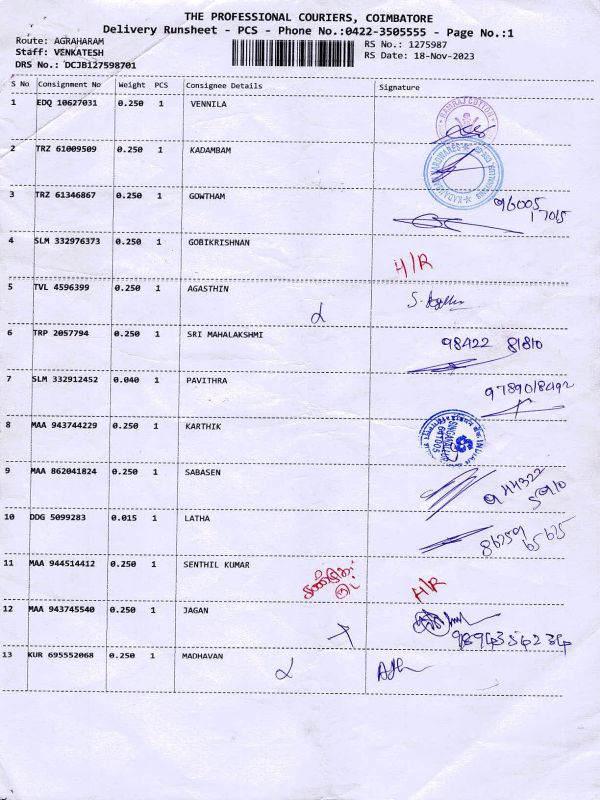 THE PROFESSIONAL COURIERS, COIMBATORE
Delivery Runsheet - PCS - Phone No.:0422-3505555 - Page No.:1
Route: AGRAHARAM
Staff: VENKATESH
DRS No.: DCJB127598701
RS No.: 1275987
RS Date: 18-Nov-2023
S No Consignment No Weight PCS Consignee Details Signature
1 EDQ 10627031 0.250 1 VENNILA
2 TRZ 61009509 0.250 1 KADAMBAM
3 TRZ 61346867 0.250 1 GOWTHAM 96005
17015
4 SLM 332976373 0.250 1 GOBIKRISHNAN H/R
5 TVL 4596399 0.250 1 AGASTHIN
6 TRP 2057794 0.250 1 SRI MAHALAKSHMI 98422 81810
7 SLM 332912452 0.040 1 PAVITHRA 9789018492
8 MAA 943744229 0.250 1 KARTHIK
9 MAA 862041824 0.250 1 SABASEN 944322
10 DDG 5099283 0.015 1 LATHA 86259
65625
11 MAA 944514412 0.250 1 SENTHIL KUMAR H/R
12 MAA 943745540 0.250 1 JAGAN 9894354234
13 KUR 695552068 0.250 1 MADHAVAN